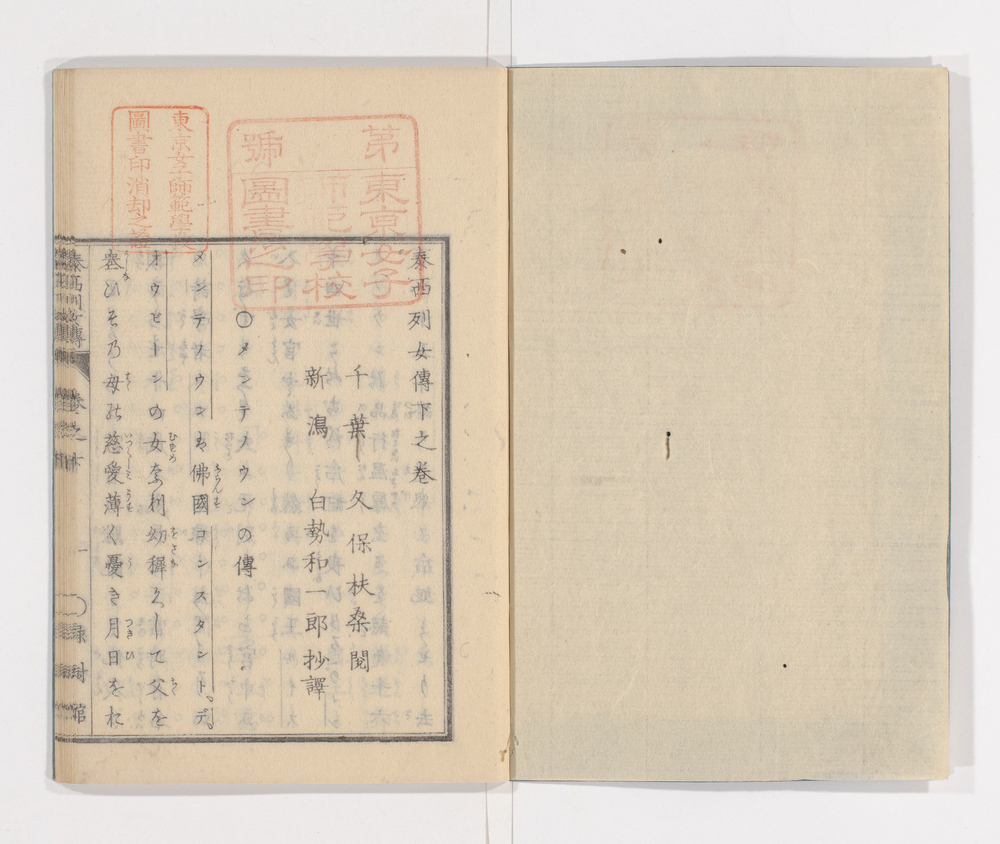 泰西列女傳下之卷
千葉 久保扶桑閲
新潟 白勢和一郎抄譯
〇メンテノウンの傳
メンテノウンは佛國コンスタント、デ、
オウビーンの女奈利幼穉くして父を
喪ひその母の慈愛薄く憂き月日をれ
第
號
東京女子
師範學校
圖書之印
東京女子師範學校
圖書印消却之證
泰西列女傳 卷之下 一 緑樹館